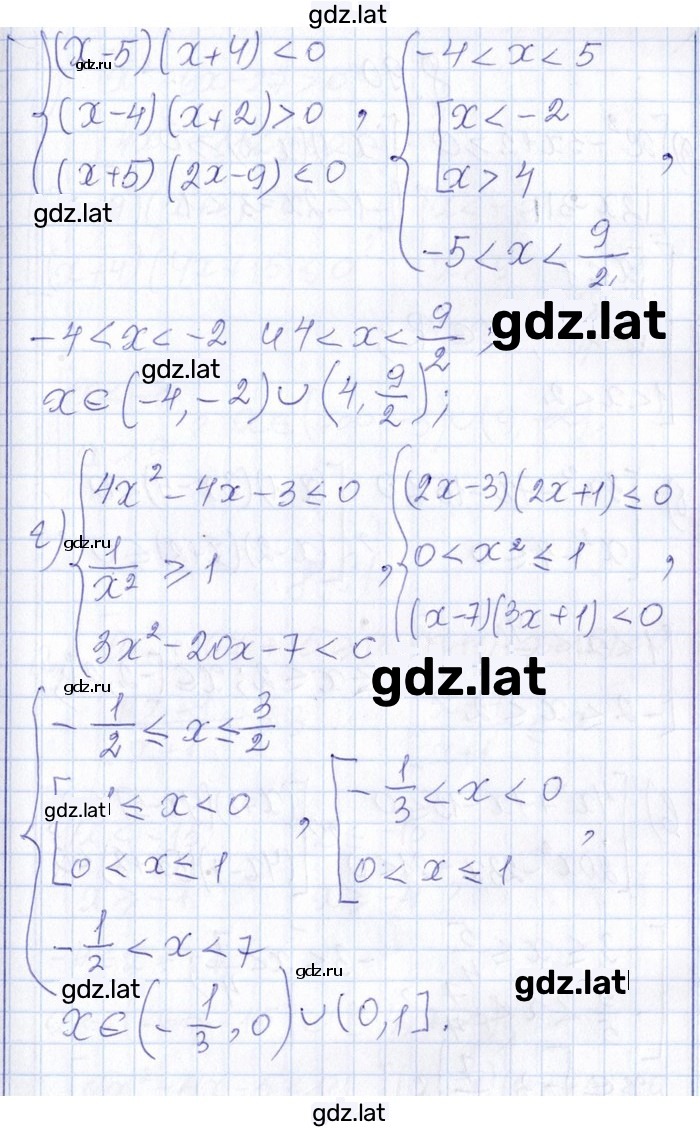 gdz.lat
{ (x-5)(x+4) < 0
(x-4)(x+2) > 0
(x+5)(2x-9) < 0 ,
{ -4 < x < 5
[ x < -2
x > 4
-5 < x < 9/2 ,
gdz.ru
gdz.lat
-4 < x < -2 и 4 < x < 9/2 ;
gdz.lat
gdz.lat
x ∈ (-4, -2) ∪ (4, 9/2);
г) { 4x² - 4x - 3 ≤ 0
1/x² ≥ 1
3x² - 20x - 7 < 0 ,
{ (2x-3)(2x+1) ≤ 0
0 < x² ≤ 1
(x-7)(3x+1) < 0 ,
gdz.ru
gdz.lat
gdz.ru
{ -1/2 ≤ x ≤ 3/2
[ ≤ x < 0
0 < x ≤ 1
-1/2 < x < 7 ,
gdz.lat
[ -1/3 < x < 0
0 < x ≤ 1 ,
gdz.lat
gdz.ru
gdz.lat
x ∈ (-1/3, 0) ∪ (0, 1].
gdz.lat